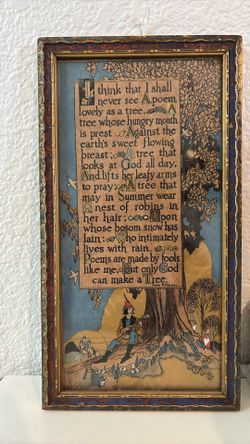 I think that I shall
never see A poem
lovely as a tree. A
tree whose hungry mouth
is prest Against the
earth's sweet flowing
breast A tree that
looks at God all day,
And lifts her leafy arms
to pray; A tree that
may in Summer wear
A nest of robins in
her hair; Upon
whose bosom snow has
lain; Who intimately
lives with rain.
Poems are made by fools
like me, But only God
can make a Tree.